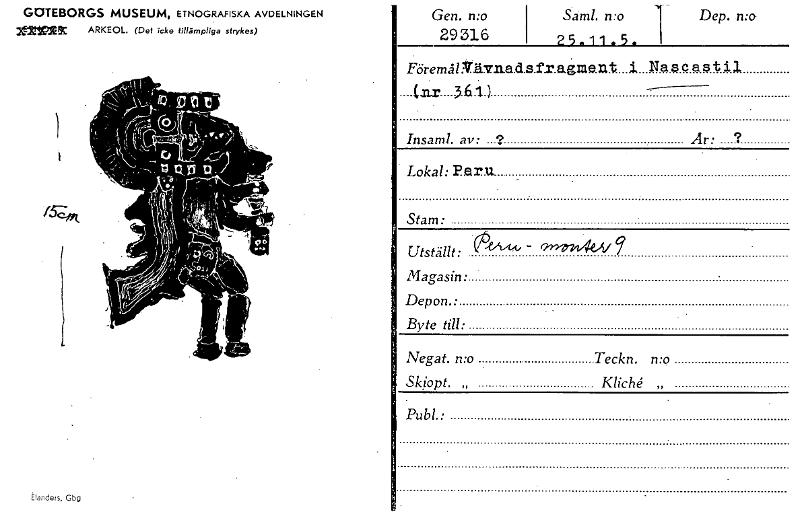 GÖTEBORGS MUSEUM, ETNOGRAFISKA AVDELNINGEN
ARKEOL. (Det icke tillämpliga strykes)
15cm
Elanders, Gbg
Gen. n:o Saml. n:o Dep. n:o
29316 25.11.5.
Föremål: Vävnadsfragment i Nascastil
(nr 361)
Insaml. av: ? År: ?
Lokal: Peru
Stam:
Utställt: Peru - monter 9
Magasin:
Depon.:
Byte till:
Negat. n:o Teckn. n:o
Skiopt. „ Kliché „
Publ.: